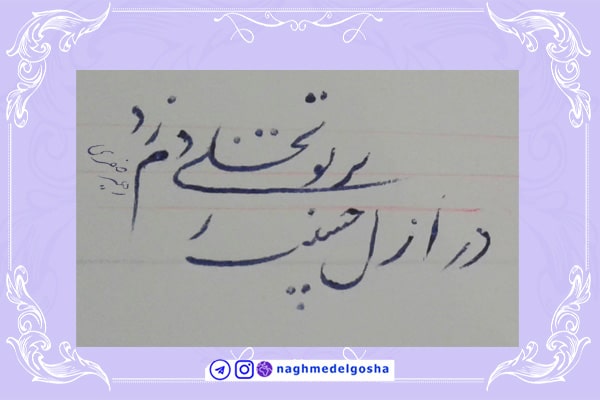 در ازل پرتو حسنت ز تجلی دم زد
naghmedelgosha